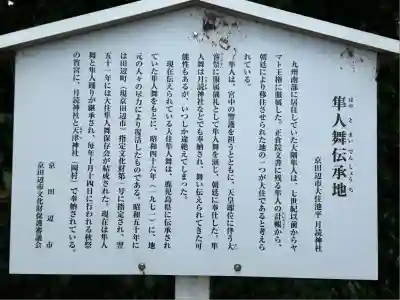 はやとまいでんしょうち
隼人舞伝承地
京田辺市大住池平 月読神社
九州南部に居住していた大隅隼人は、七世紀以前からヤ
マト王権に服属した。正倉院文書に残る隼人の計帳から、
朝廷により移住させられた地の一つが大住であると考えら
れている。
隼人は、宮中の警護を担うとともに、天皇即位に伴う大
嘗祭に服属儀礼として隼人舞を演じ、朝廷に奉仕した。隼
人舞は月読神社などでも奉納され、舞い伝えられてきた可
能性もあるが、いつしか途絶えてしまった。
現在伝えられている大住隼人舞は、鹿児島県に伝承され
ていた隼人舞をもとに、昭和四十六年(一九七一)に、地
元の人々の尽力により復活したものである。昭和五十年に
は田辺町(現京田辺市)指定文化財第一号に指定され、翌
五十一年には大住隼人舞保存会が結成された。現在は隼人
舞と隼人踊りが継承され、毎年十月十四日に行われる秋祭
の宵宮に、月読神社と天津神社(岡村)で奉納されている。
京田辺市
京田辺市文化財保護審議会